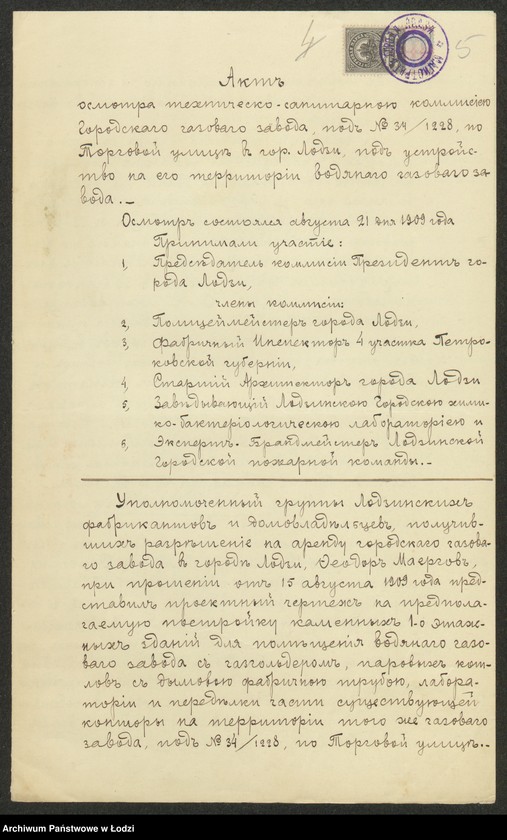 4
5
Актъ
осмотра техническо-санитарною коммисіею
Городскаго газоваго завода, подъ № 34/1228, по
Торговой улицѣ в гор. Лодзи, подъ устрой-
ство на его территоріи водянаго газоваго за
вода.—
Осмотръ состоялся августа 21 дня 1909 года
Принимали участіе:
1, Предсѣдатель коммисіи Президентъ го-
рода Лодзи,
члены коммисіи:
2, Полицеймейстеръ города Лодзи,
3, Фабричный Инспекторъ 4 участка Петро-
ковской губерніи,
4, Старшій Архитекторъ города Лодзи
5, Завѣдывающій Лодзинскою Городскою хими-
ко-бактеріологическою лабораторіею и
6, Экспертъ-Брандмейстеръ Лодзинской
Городской пожарной команды.—
Уполномоченный группы Лодзинскихъ
фабрикантовъ и домовладѣльцевъ, получив-
шихъ разрѣшеніе на аренду городскаго газова-
го завода в городѣ Лодзи, Ѳеодоръ
при прошеніи отъ 15 августа 1909 года пред-
ставилъ проектный чертежъ на предпола-
гаемую постройку каменныхъ 1-о этаж-
ныхъ зданій для помѣщенія водянаго газо-
ваго завода съ газгольдеромъ, паровыхъ кот-
ловъ съ дымовою фабричною трубою, лабора-
торіи и передѣлки части существующей
конторы на территоріи того же газоваго
завода, подъ № 34/1228, по Торговой улицѣ.—
Archiwum Państwowe w Łodzi